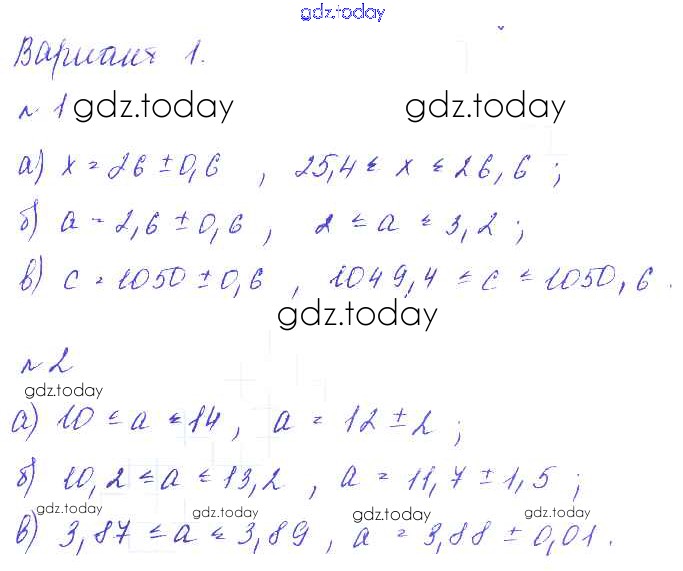 gdz.today
Вариант 1.
№ 1 gdz.today gdz.today
а) x = 26 ± 0,6 , 25,4 ≤ x ≤ 26,6 ;
б) a = 2,6 ± 0,6 , 2 ≤ a ≤ 3,2 ;
в) c = 1050 ± 0,6 , 1049,4 ≤ c ≤ 1050,6 .
gdz.today
№ 2
gdz.today
а) 10 ≤ a ≤ 14 , a = 12 ± 2 ;
б) 10,2 ≤ a ≤ 13,2 , a = 11,7 ± 1,5 ;
gdz.today gdz.today gdz.today
в) 3,87 ≤ a ≤ 3,89 , a = 3,88 ± 0,01 .